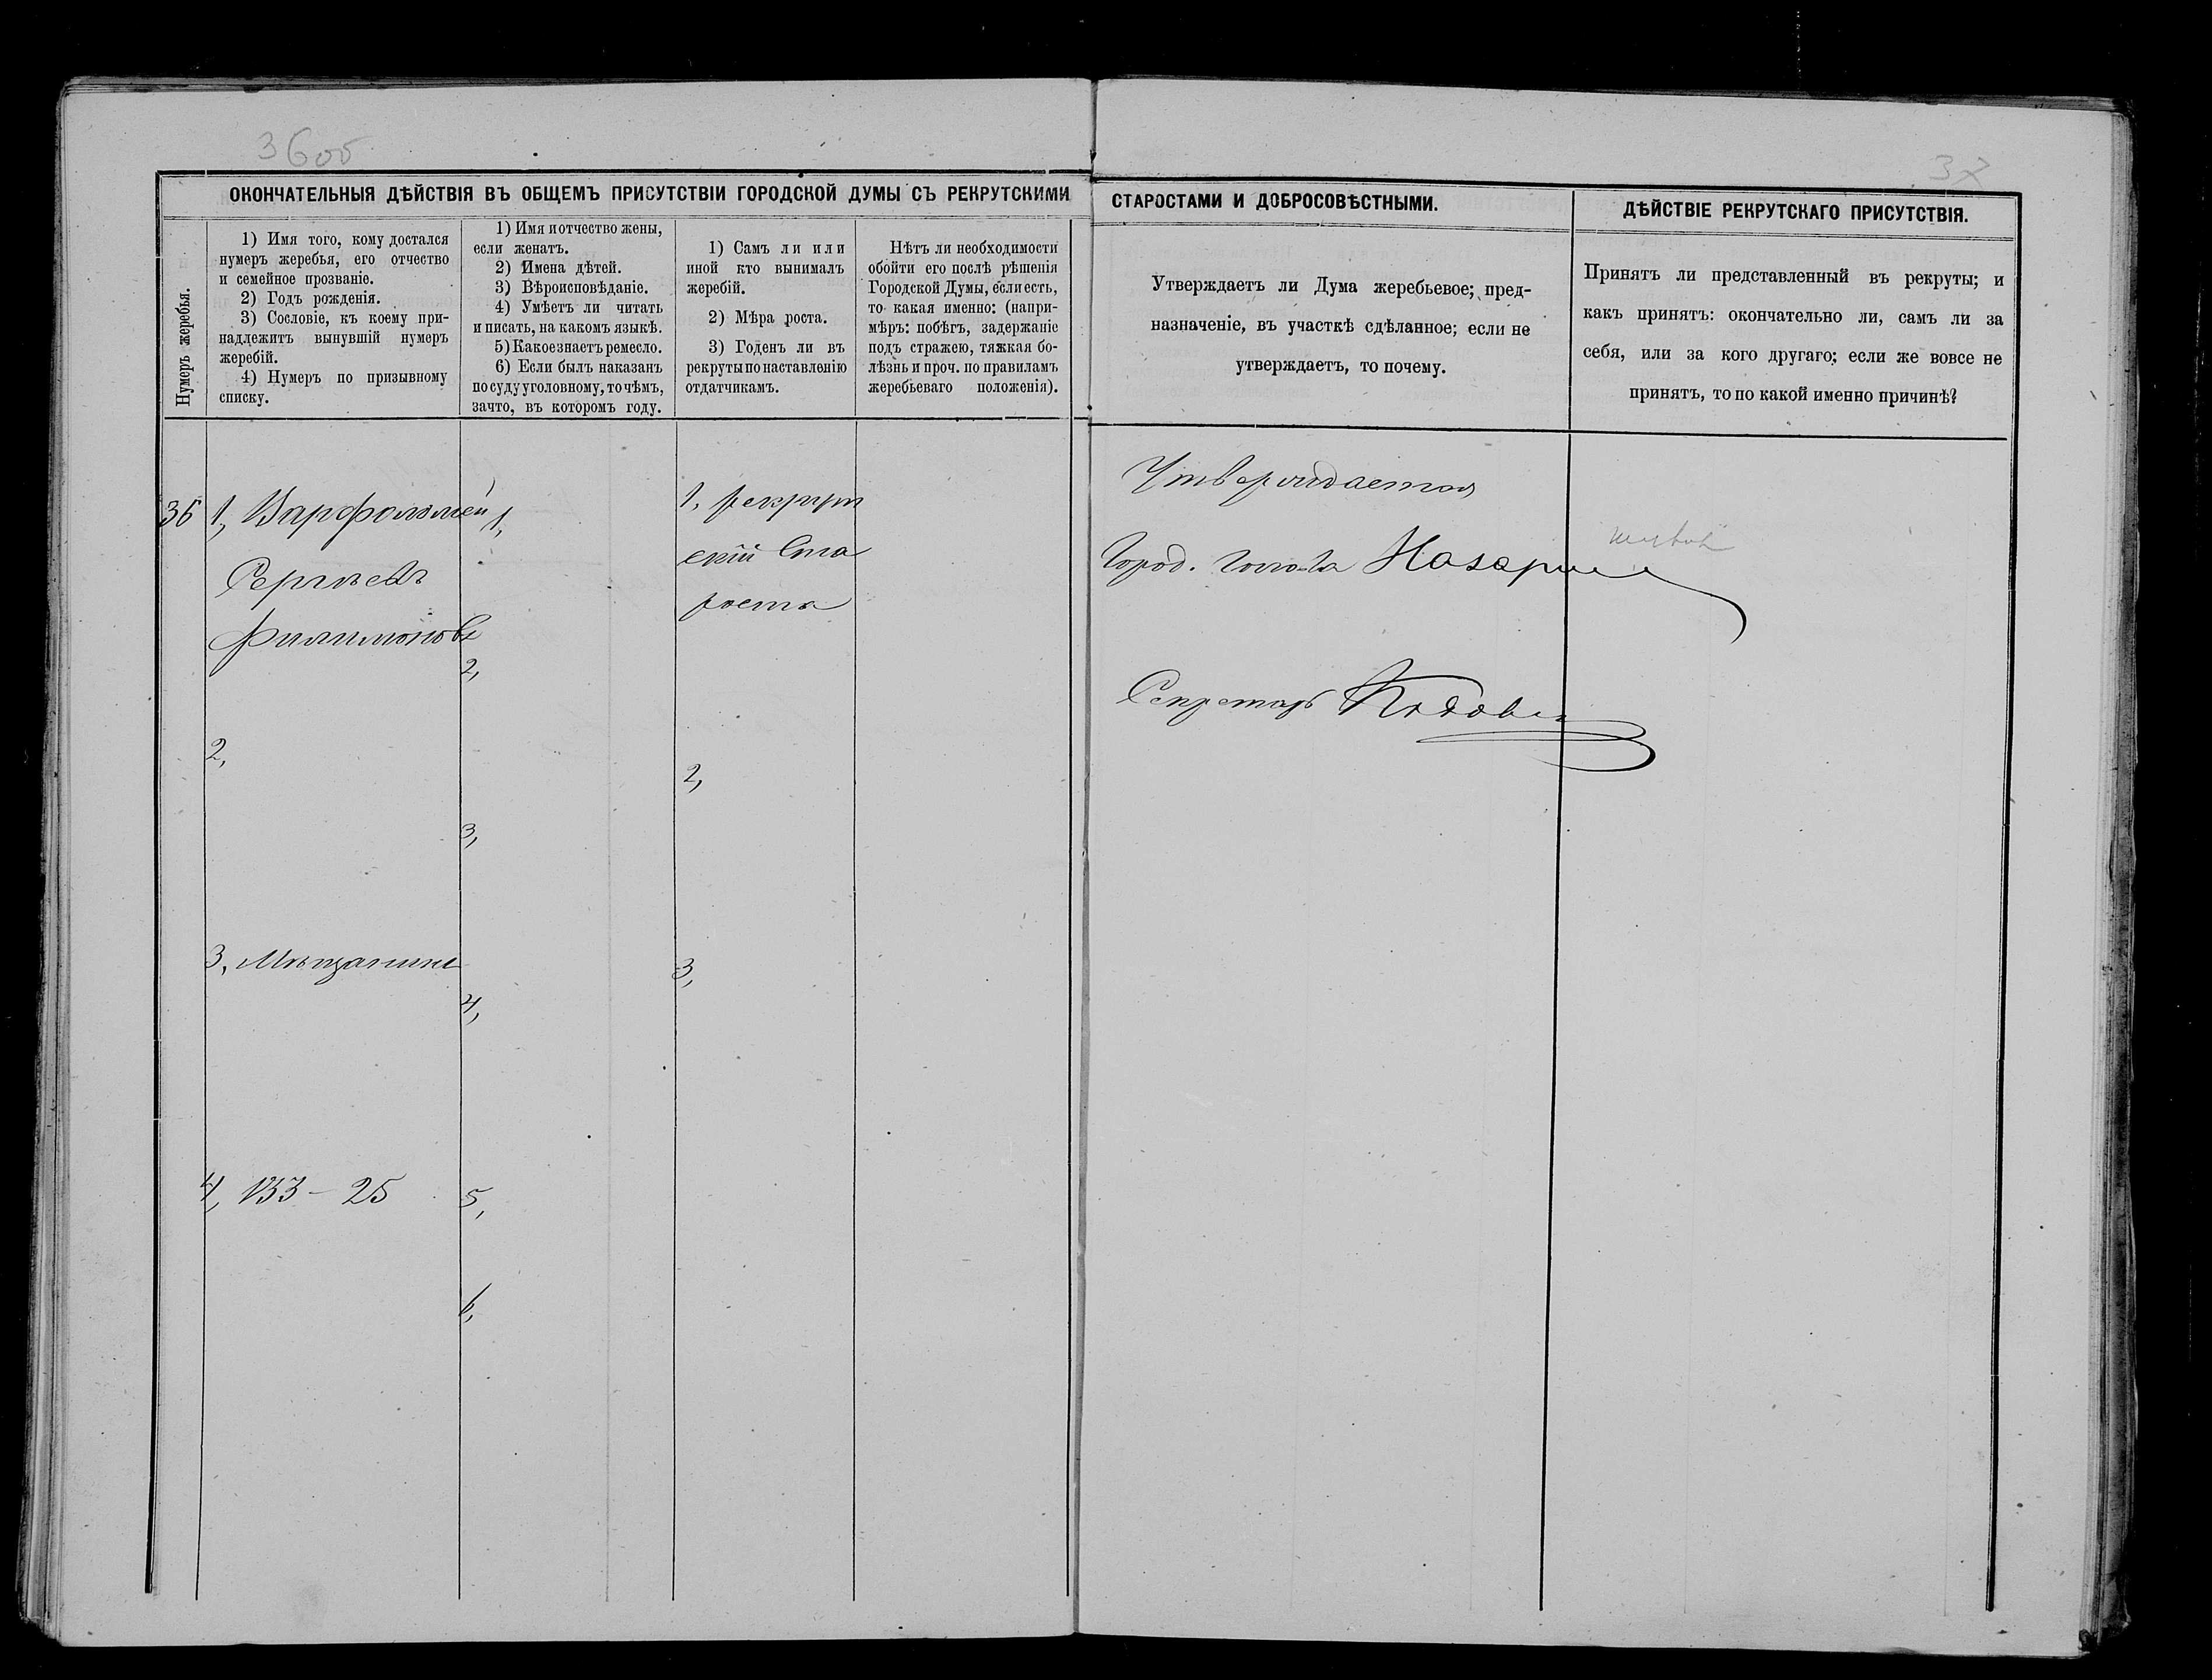 36об
37
ОКОНЧАТЕЛЬНЫЯ ДѢЙСТВІЯ ВЪ ОБЩЕМЪ ПРИСУТСТВІИ ГОРОДСКОЙ ДУМЫ СЪ РЕКРУТСКИМИ
СТАРОСТАМИ И ДОБРОСОВѢСТНЫМИ.
ДѢЙСТВІЕ РЕКРУТСКАГО ПРИСУТСТВІЯ.
Нумеръ жеребья.
1) Имя того, кому достался
нумеръ жеребья, его отчество
и семейное прозваніе.
2) Годъ рожденія.
3) Сословіе, къ коему при-
надлежитъ вынувшій нумеръ
жеребій.
4) Нумеръ по призывному
списку.
1) Имя и отчество жены,
если женатъ.
2) Имена дѣтей.
3) Вѣроисповѣданіе.
4) Умѣетъ ли читать
и писать, на какомъ языкѣ.
5) Какое знаетъ ремесло.
6) Если былъ наказанъ
по суду уголовному, то чѣмъ,
за что, въ которомъ году.
1) Самъ ли или
иной кто вынималъ
жеребій.
2) Мѣра роста.
3) Годенъ ли въ
рекруты по наставленію
отдатчикамъ.
Нѣтъ ли необходимости
обойти его послѣ рѣшенія
Городской Думы, если есть,
то какая именно: (напри-
мѣръ: побѣгъ, задержаніе
подъ стражею, тяжкая бо-
лѣзнь и проч. по правиламъ
жеребьеваго положенія).
Утверждаетъ ли Дума жеребьевое; пред-
назначеніе, въ участкѣ сдѣланное; если не
утверждаетъ, то почему.
Принятъ ли представленный въ рекруты; и
какъ принятъ: окончательно ли, самъ ли за
себя, или за кого другаго; если же вовсе не
принятъ, то по какой именно причинѣ?
36
1, Варфоломей
Сергѣевъ
Филимоновъ
2,
3, Мѣщанинъ
4, 133 – 25
1,
2,
3,
4,
5,
6,
1, рекрут
скій Ста
роста
2,
3,
Утверждается
Город. голова Назаров
Секретарь